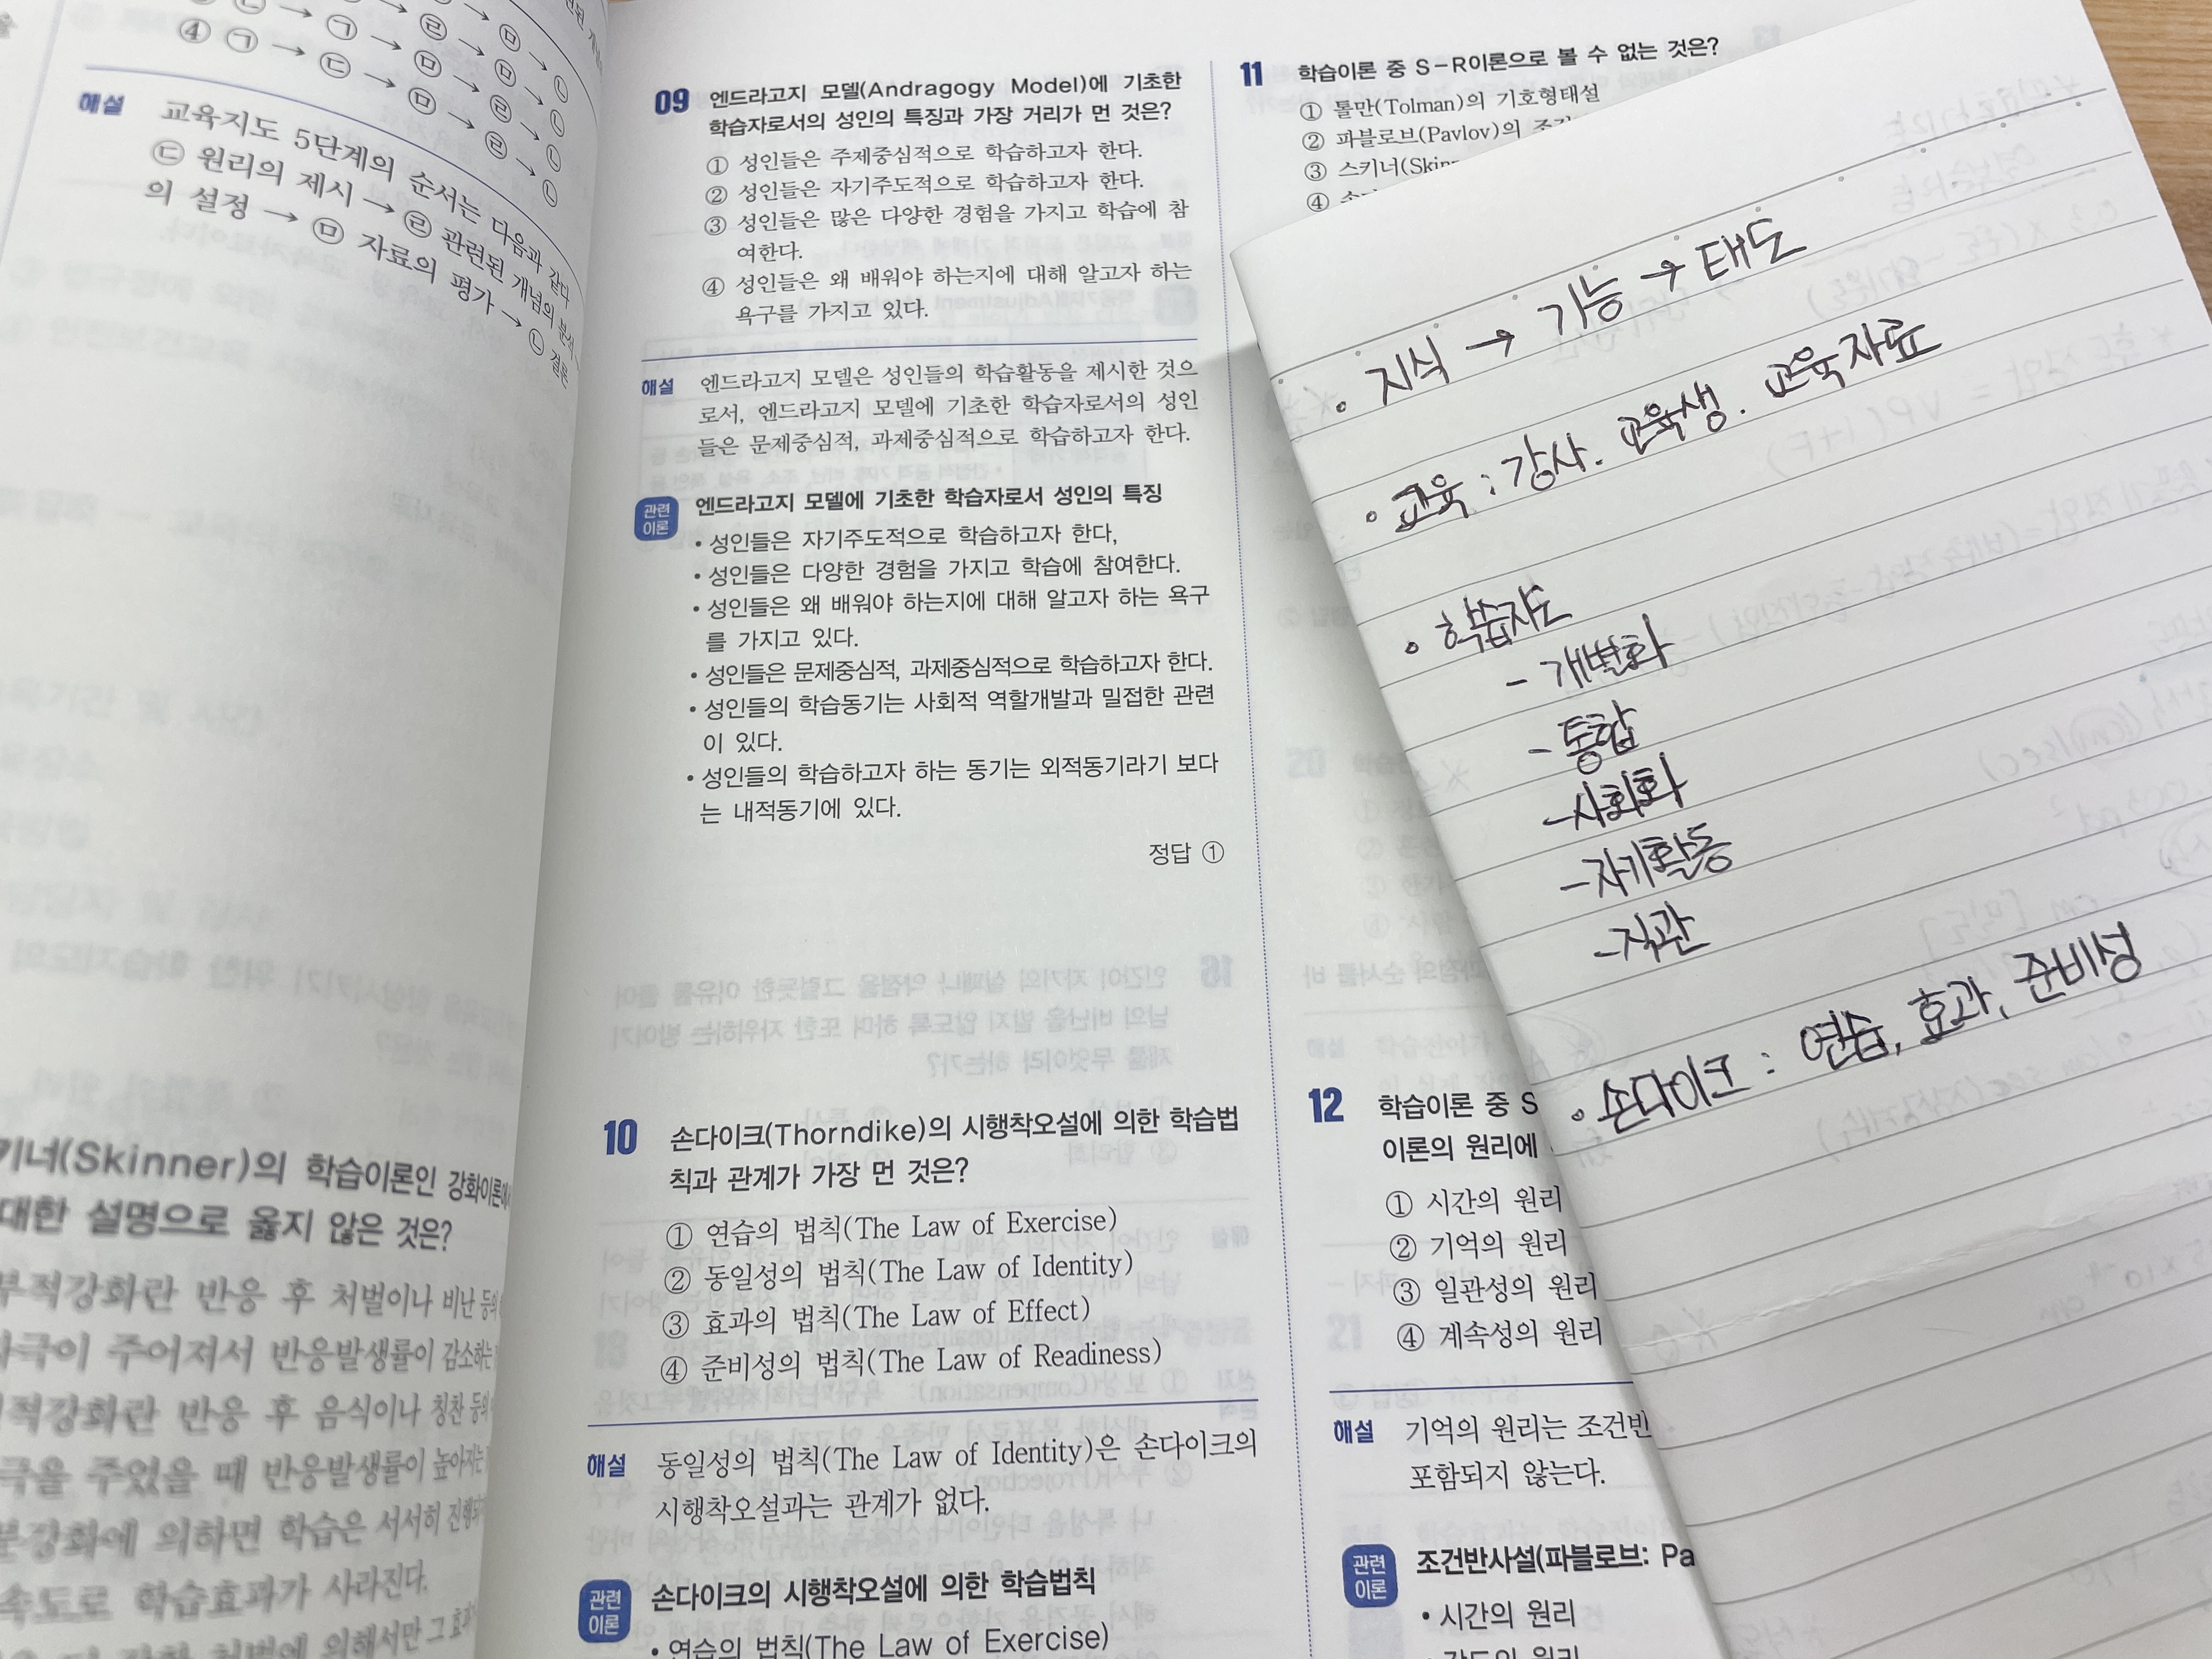 ④ ㉠ → ㉢ → ㉤ → ㉣ → ㉡
해설 교육지도 5단계의 순서는 다음과 같다
㉢ 원리의 제시 → ㉣ 관련된 개념의 분석
의 설정 → ㉤ 자료의 평가 → ㉡ 결론
키너(Skinner)의 학습이론인 강화이론에
대한 설명으로 옳지 않은 것은?
부적강화란 반응 후 처벌이나 비난 등의
자극이 주어져서 반응발생률이 감소하는
적강화란 반응 후 음식이나 칭찬 등의
극을 주었을 때 반응발생률이 높아지는
분강화에 의하면 학습은 서서히 진행되
속도로 학습효과가 사라진다.
처벌에 의해서만 그 효과
09 엔드라고지 모델(Andragogy Model)에 기초한
학습자로서의 성인의 특징과 가장 거리가 먼 것은?
① 성인들은 주제중심적으로 학습하고자 한다.
② 성인들은 자기주도적으로 학습하고자 한다.
③ 성인들은 많은 다양한 경험을 가지고 학습에 참
여한다.
④ 성인들은 왜 배워야 하는지에 대해 알고자 하는
욕구를 가지고 있다.
해설 엔드라고지 모델은 성인들의 학습활동을 제시한 것으
로서, 엔드라고지 모델에 기초한 학습자로서의 성인
들은 문제중심적, 과제중심적으로 학습하고자 한다.
관련
이론
엔드라고지 모델에 기초한 학습자로서 성인의 특징
• 성인들은 자기주도적으로 학습하고자 한다,
• 성인들은 다양한 경험을 가지고 학습에 참여한다.
• 성인들은 왜 배워야 하는지에 대해 알고자 하는 욕구
를 가지고 있다.
• 성인들은 문제중심적, 과제중심적으로 학습하고자 한다.
• 성인들의 학습동기는 사회적 역할개발과 밀접한 관련
이 있다.
• 성인들의 학습하고자 하는 동기는 외적동기라기 보다
는 내적동기에 있다.
정답 ①
10 손다이크(Thorndike)의 시행착오설에 의한 학습법
칙과 관계가 가장 먼 것은?
① 연습의 법칙(The Law of Exercise)
② 동일성의 법칙(The Law of Identity)
③ 효과의 법칙(The Law of Effect)
④ 준비성의 법칙(The Law of Readiness)
해설 동일성의 법칙(The Law of Identity)은 손다이크의
시행착오설과는 관계가 없다.
관련
이론
손다이크의 시행착오설에 의한 학습법칙
• 연습의 법칙(The Law of Exercise)
11 학습이론 중 S-R이론으로 볼 수 없는 것은?
① 톨만(Tolman)의 기호형태설
② 파블로브(Pavlov)의
③ 스키너(Skin
④
12 학습이론 중 S
이론의 원리에
① 시간의 원리
② 기억의 원리
③ 일관성의 원리
④ 계속성의 원리
해설 기억의 원리는 조건반
포함되지 않는다.
관련
이론
조건반사설(파블로브: Pa
• 시간의 원리
• 강도의 원리
• 지식 → 기능 → 태도
• 교육 : 강사. 교육생. 교육자료
• 학습지도
- 개별화
- 통합
- 사회화
- 자기활동
- 직관
• 손다이크 : 연습, 효과, 준비성